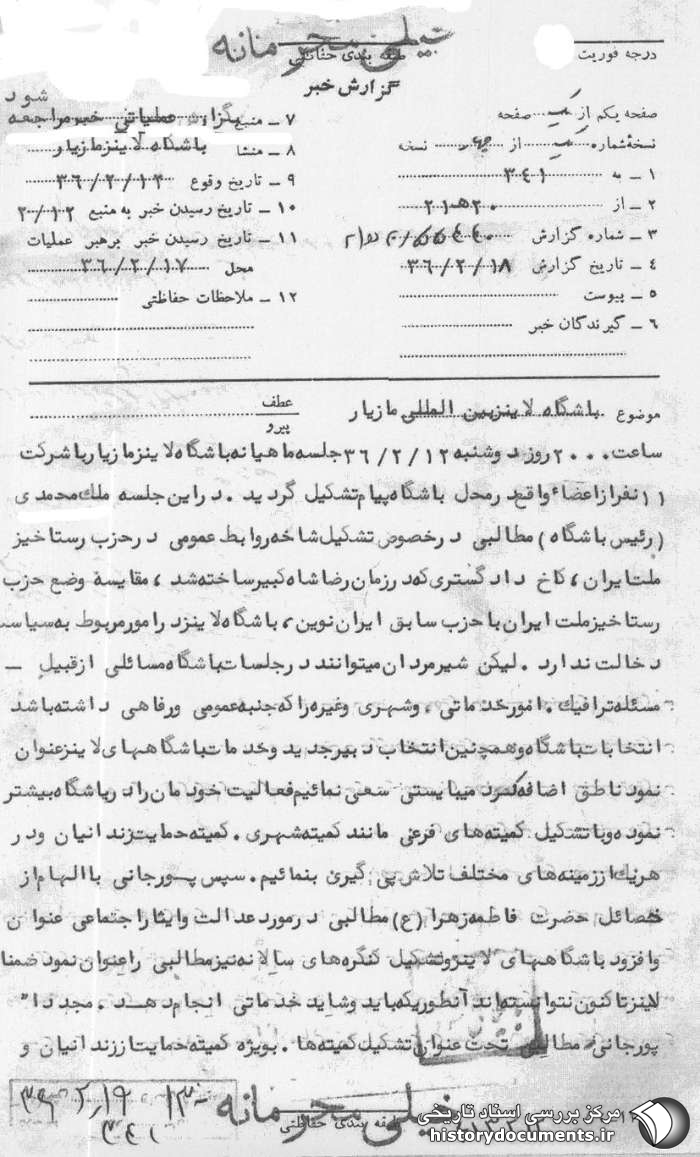 خیلی محرمانه
درجه فوریت
طبقه بندی حفاظتی
گزارش خبر
صفحه یکم از یک صفحه
نسخهٔ شماره یک از چهار نسخه
۱ – به ۳۴۱
۲ – از ۲۰ هـ ۲۱
۳ – شماره گزارش
۴ – تاریخ گزارش ۳۶/۲/۱۸
۵ – پیوست
۶ – گیرندگان خبر
شود
۷ – منبع بگزارش عملیاتی خبر مراجعه
۸ – منشا باشگاه لاینز مازیار
۹ – تاریخ وقوع ۳۶/۲/۱۲
۱۰ – تاریخ رسیدن خبر به منبع ۲۰/۱۲
۱۱ – تاریخ رسیدن خبر برهبر عملیات
محل ۳۶/۲/۱۷
۱۲ – ملاحظات حفاظتی
موضوع باشگاه لاینز بین المللی مازیار
عطف
پیرو
ساعت ۲۰۰۰ روز دوشنبه ۳۶/۲/۱۲ جلسه ماهیانه باشگاه لاینز مازیار با شرکت
۱۱ نفر از اعضاء واقع در محل باشگاه پیام تشکیل گردید . در این جلسه ملك محمدی
(رئیس باشگاه) مطالبی در خصوص تشکیل شاخه روابط عمومی در حزب رستاخیز
ملت ایران ، کاخ دادگستری که در زمان رضا شاه کبیر ساخته شد ، مقایسه وضع حزب
رستاخیز ملت ایران با حزب سابق ایران نوین ، باشگاه لاینز در امور مربوط به سیاست
دخالت ندارد . لیکن شیرمردان میتوانند در جلسات باشگاه مسائلی از قبیل –
مسئله ترافیك . امور خدماتی ، و شهری و غیره را که جنبه عمومی و رفاهی داشته باشد
انتخابات باشگاه و همچنین انتخاب دبیر جدید و خدمات باشگاههای لاینز عنوان
نمود ناطق اضافه کرد میبایستی سعی نمائیم فعالیت خودمان را در باشگاه بیشتر
نموده و با تشکیل کمیته های فرعی مانند کمیته شهری . کمیته حمایت زندانیان و در
هر یك از زمینه های مختلف تلاش پی گیری بنمائیم . سپس پورجانی با الهام از
خصائل حضرت فاطمه زهرا (ع) مطالبی در مورد عدالت و ایثار اجتماعی عنوان و
و افزود باشگاههای لاینز و تشکیل کنگره های سالانه نیز مطالبی را عنوان نمود ضمنا
لاینز تاکنون نتوانسته اند آنطوریکه باید و شاید خدماتی انجام دهند . مجددا"
پورجانی مطالبی تحت عنوان تشکیل کمیته ها . بویژه کمیته حمایت از زندانیان و
خیلی محرمانه
طبقه بندی حفاظتی
۳۶ ۲/۱۹ ۱۳۰۰
۳۴۱
مرکز بررسی اسناد تاریخی
historydocuments.ir